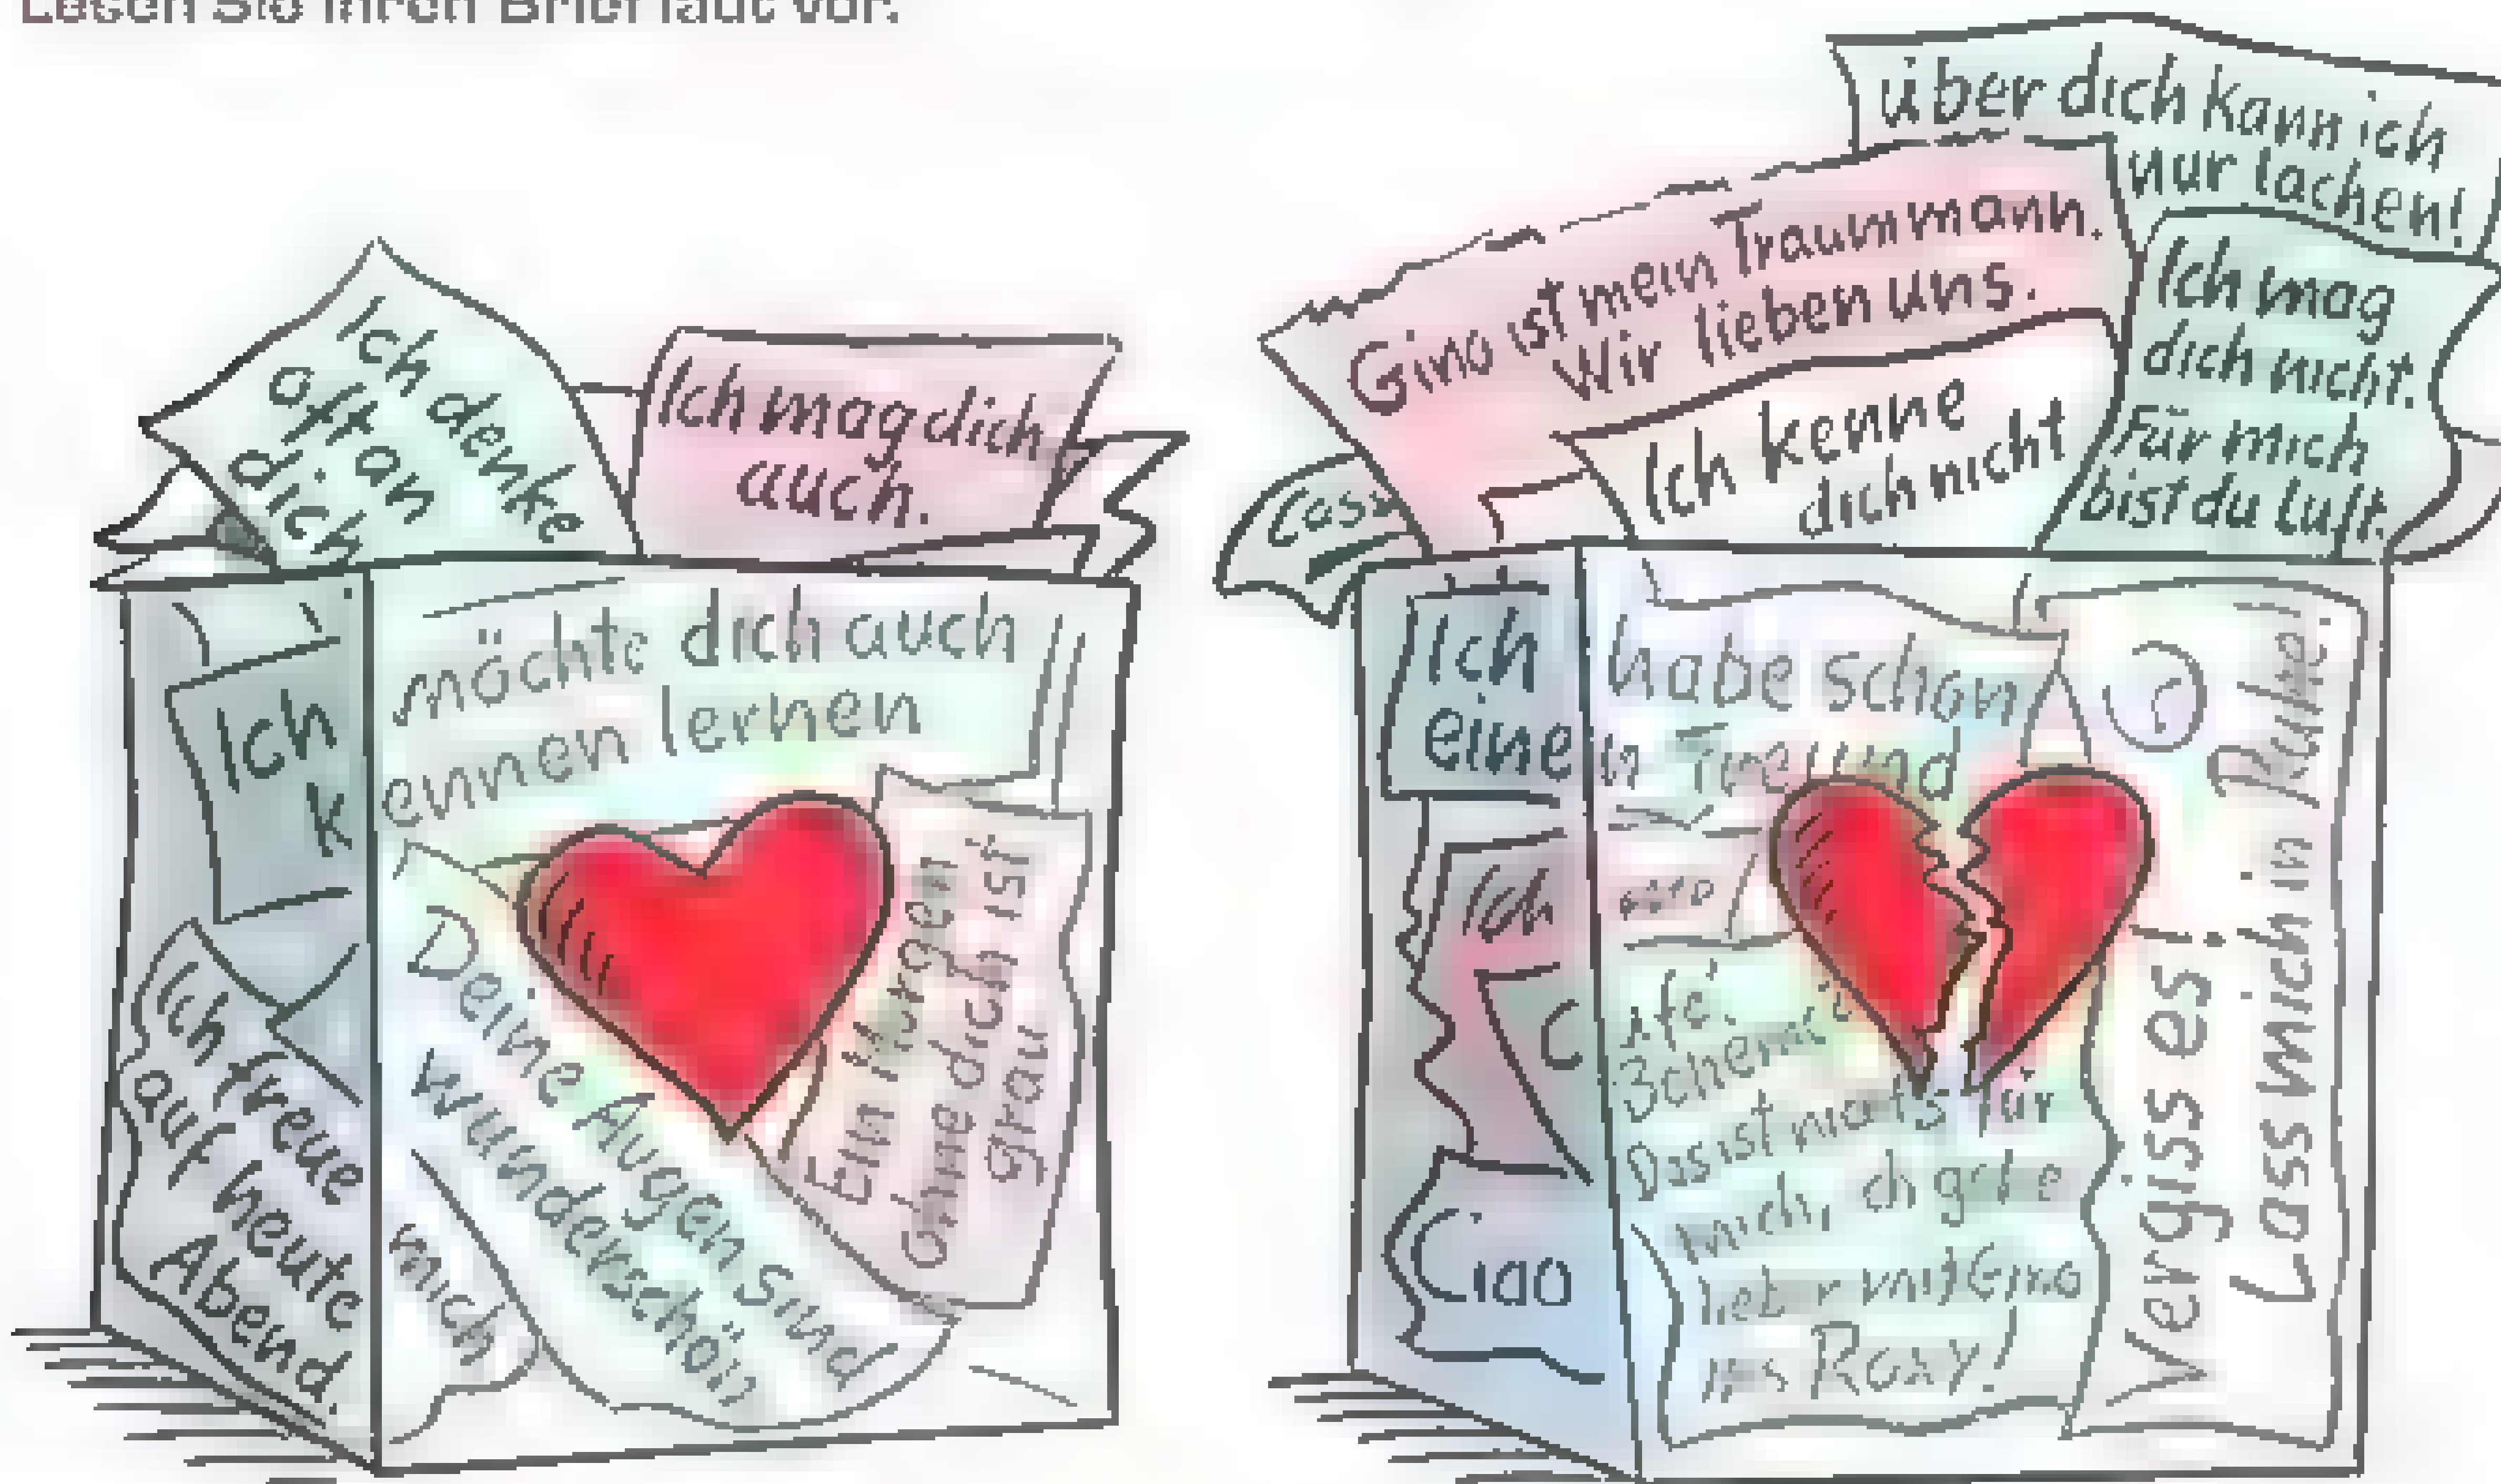 Lesen Sie Ihren Brief laut vor.
Ich denke
oft an
dich
Ich mag dich
auch.
Ich möchte dich auch
kennen lernen
Ich freue mich
auf heute
Abend.
Deine Augen sind
wunderschön
Ein Morgen
ohne dich ist
grau
über dich kann ich
nur lachen!
Gino ist mein Traummann.
Wir lieben uns.
Ich kenne
dich nicht
Ich mag
dich nicht.
Für mich
bist du Luft.
Ich habe schon
einen Freund
Ich
Ciao
Das ist nichts für
mich, ich gehe
lieber mit Gino
ins Roxy!
Vergiss es!
Lass mich in Ruhe!